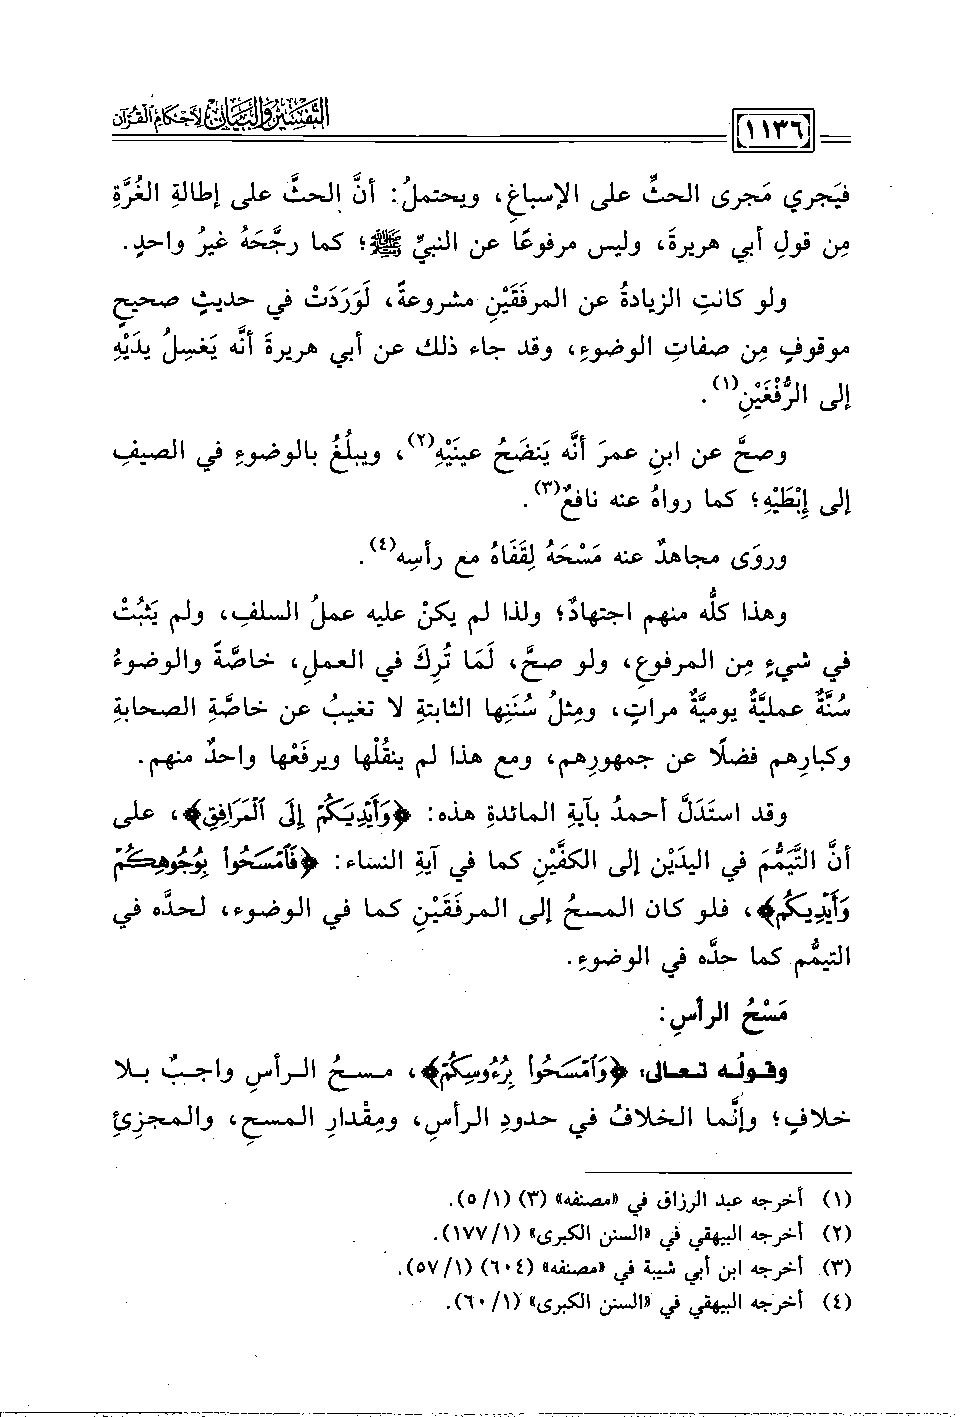 التفسير والبيان لأحكام القرآن
١١٣٦
فيَجرِي مَجرى الحثِّ على الإسباغِ، ويحتملُ: أنَّ الحثَّ على إطالةِ الغُرَّةِ
مِن قولِ أبي هريرةَ، وليس مرفوعًا عن النبيِّ ﷺ؛ كما رجَّحَهُ غيرُ واحدٍ.
ولو كانتِ الزيادةُ عن المرفَقَيْنِ مشروعةً، لَوَرَدَتْ في حديثٍ صحيحٍ
موقوفٍ مِن صفاتِ الوضوءِ، وقد جاء ذلك عن أبي هريرةَ أنَّه يَغسِلُ يدَيْهِ
إلى الرُّفْغَيْنِ(١).
وصحَّ عن ابنِ عمرَ أنَّه يَنضَحُ عينَيْهِ(٢)، ويبلُغُ بالوضوءِ في الصيفِ
إلى إبْطَيْهِ؛ كما رواهُ عنه نافعٌ(٣).
وروَى مجاهدٌ عنه مَسْحَهُ لِقَفَاهُ مع رأسِه(٤).
وهذا كلُّه منهم اجتهادٌ؛ ولذا لم يكنْ عليه عملُ السلفِ، ولم يَثبُتْ
في شيءٍ مِن المرفوعِ، ولو صحَّ، لَمَا تُرِكَ في العملِ، خاصَّةً والوضوءُ
سُنَّةٌ عمليَّةٌ يوميَّةٌ مراتٍ، ومِثلُ سُنَنِها الثابتةِ لا تغيبُ عن خاصَّةِ الصحابةِ
وكبارِهم فضلًا عن جمهورِهم، ومع هذا لم ينقُلْها ويرفَعْها واحدٌ منهم.
وقد استَدَلَّ أحمدُ بآيةِ المائدةِ هذه: ﴿وَأَيْدِيَكُمْ إِلَى ٱلْمَرَافِقِ﴾، على
أنَّ التَّيَمُّمَ في اليدَيْنِ إلى الكفَّيْنِ كما في آيةِ النساء: ﴿فَٱمْسَحُوا۟ بِوُجُوهِكُمْ
وَأَيْدِيكُم﴾، فلو كان المسحُ إلى المرفَقَيْنِ كما في الوضوء، لحدَّه في
التيمُّم كما حدَّه في الوضوءِ.
مَسْحُ الرأسِ:
وقولُه تعالى: ﴿وَٱمْسَحُوا۟ بِرُءُوسِكُمْ﴾، مسحُ الرأسِ واجبٌ بلا
خلافٍ؛ وإنَّما الخلافُ في حدودِ الرأسِ، ومِقْدارِ المسحِ، والمجزِئِ
(١) أخرجه عبد الرزاق في «مصنفه» (٣) (١/ ٥).
(٢) أخرجه البيهقي في «السنن الكبرى» (١/ ١٧٧).
(٣) أخرجه ابن أبي شيبة في «مصنفه» (٦٠٤) (١/ ٥٧).
(٤) أخرجه البيهقي في «السنن الكبرى» (١/ ٦٠).